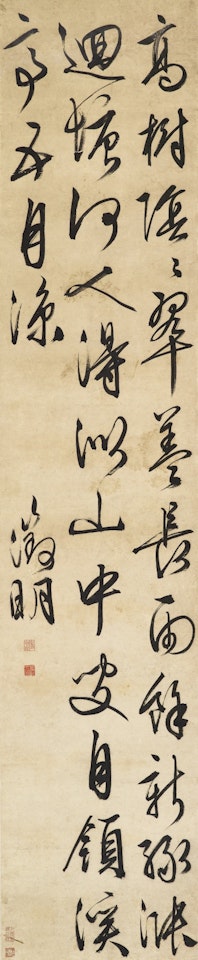 高樹陰〻翠蓋長雨餘新綠漲
迴塘何人得似山中叟自領溪
亭五月涼
徵明